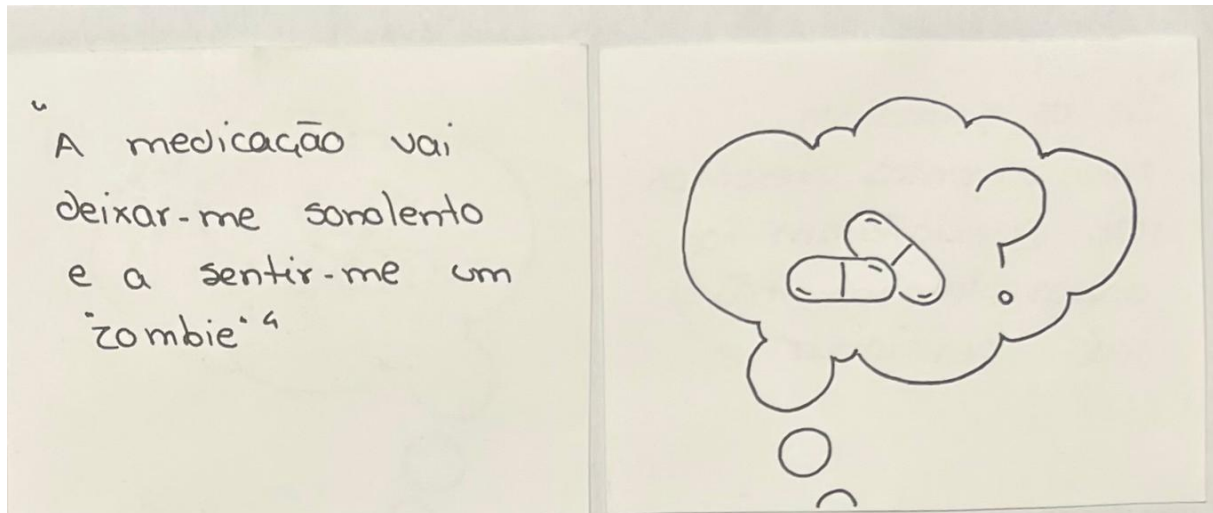 "A medicação vai
deixar-me sonolento
e a sentir-me um
"zombie" "
?